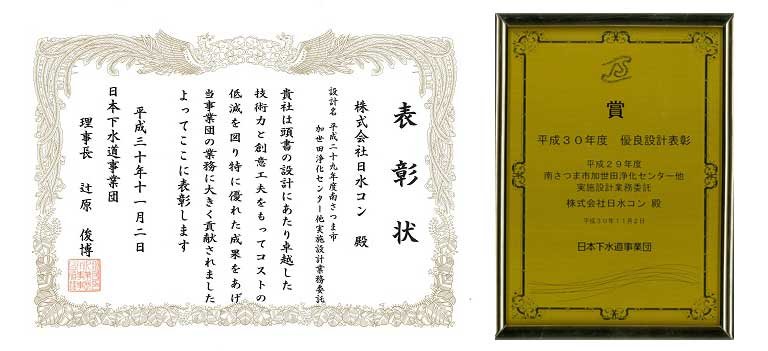 表彰状
株式会社日水コン 殿
設計名 平成二十九年度南さつま市
加世田浄化センター他実施設計業務委託
貴社は頭書の設計にあたり卓越した
技術力と創意工夫をもってコストの
低減を図り特に優れた成果をあげ
当事業団の業務に大きく貢献されました
よってここに表彰します
平成三十年十一月二日
日本下水道事業団
理事長 辻原 俊博
JS
賞
平成30年度 優良設計表彰
平成29年度
南さつま市加世田浄化センター他
実施設計業務委託
株式会社日水コン 殿
平成30年11月2日
日本下水道事業団